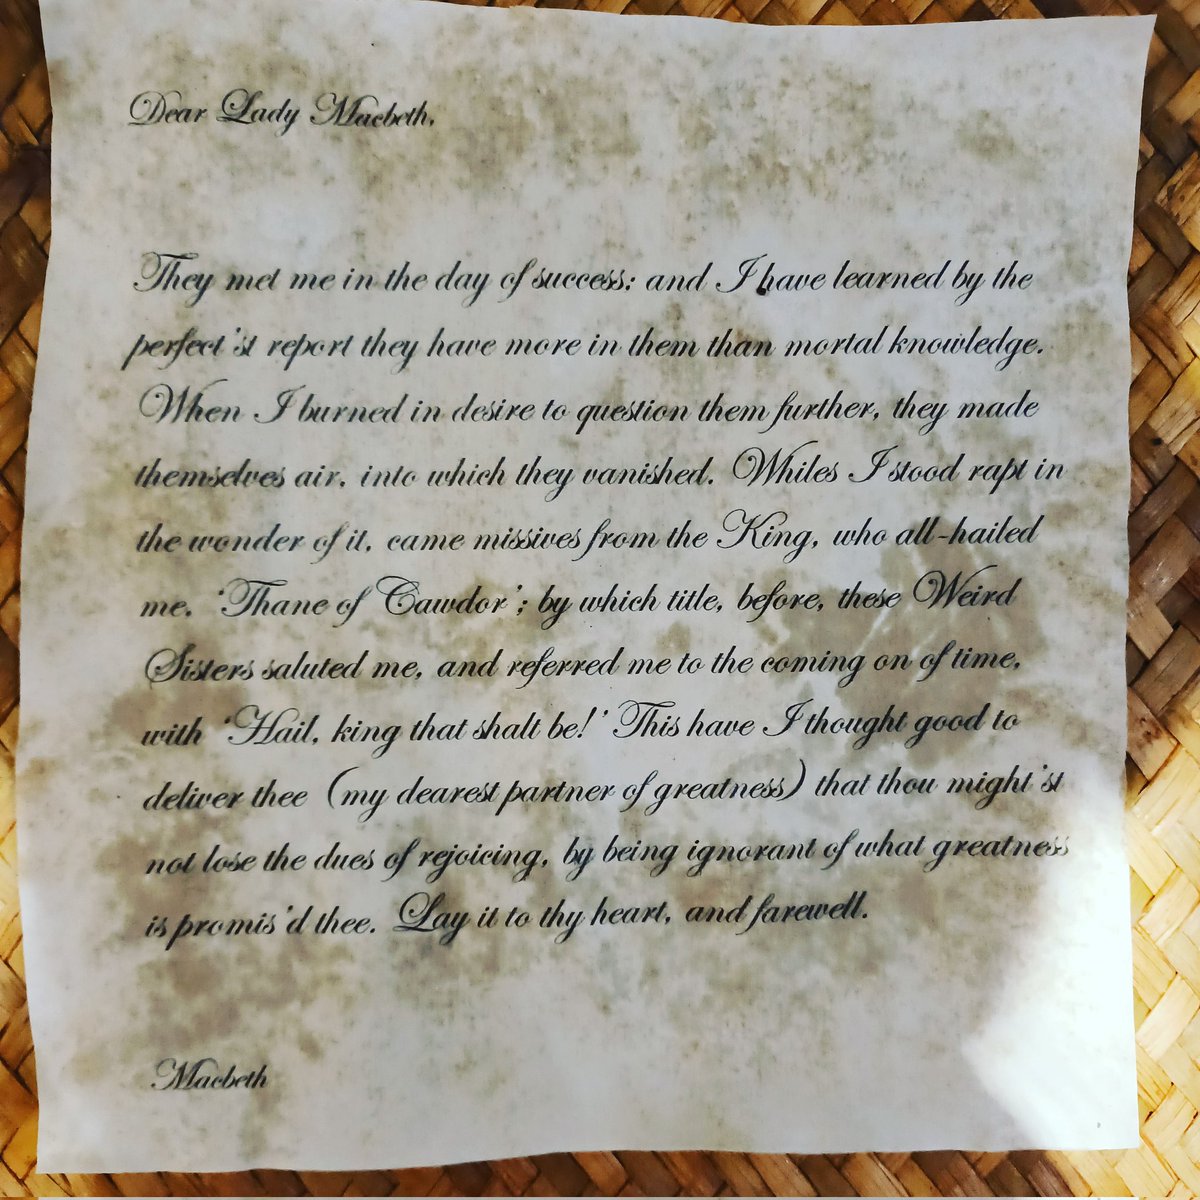 Dear Lady Macbeth,
They met me in the day of success: and I have learned by the
perfect'st report they have more in them than mortal knowledge.
When I burned in desire to question them further, they made
themselves air, into which they vanished. Whiles I stood rapt in
the wonder of it, came missives from the King, who all-hailed
me, 'Thane of Cawdor'; by which title, before, these Weird
Sisters saluted me, and referred me to the coming on of time,
with 'Hail, king that shalt be!' This have I thought good to
deliver thee (my dearest partner of greatness) that thou might'st
not lose the dues of rejoicing, by being ignorant of what greatness
is promis'd thee. Lay it to thy heart, and farewell.
Macbeth